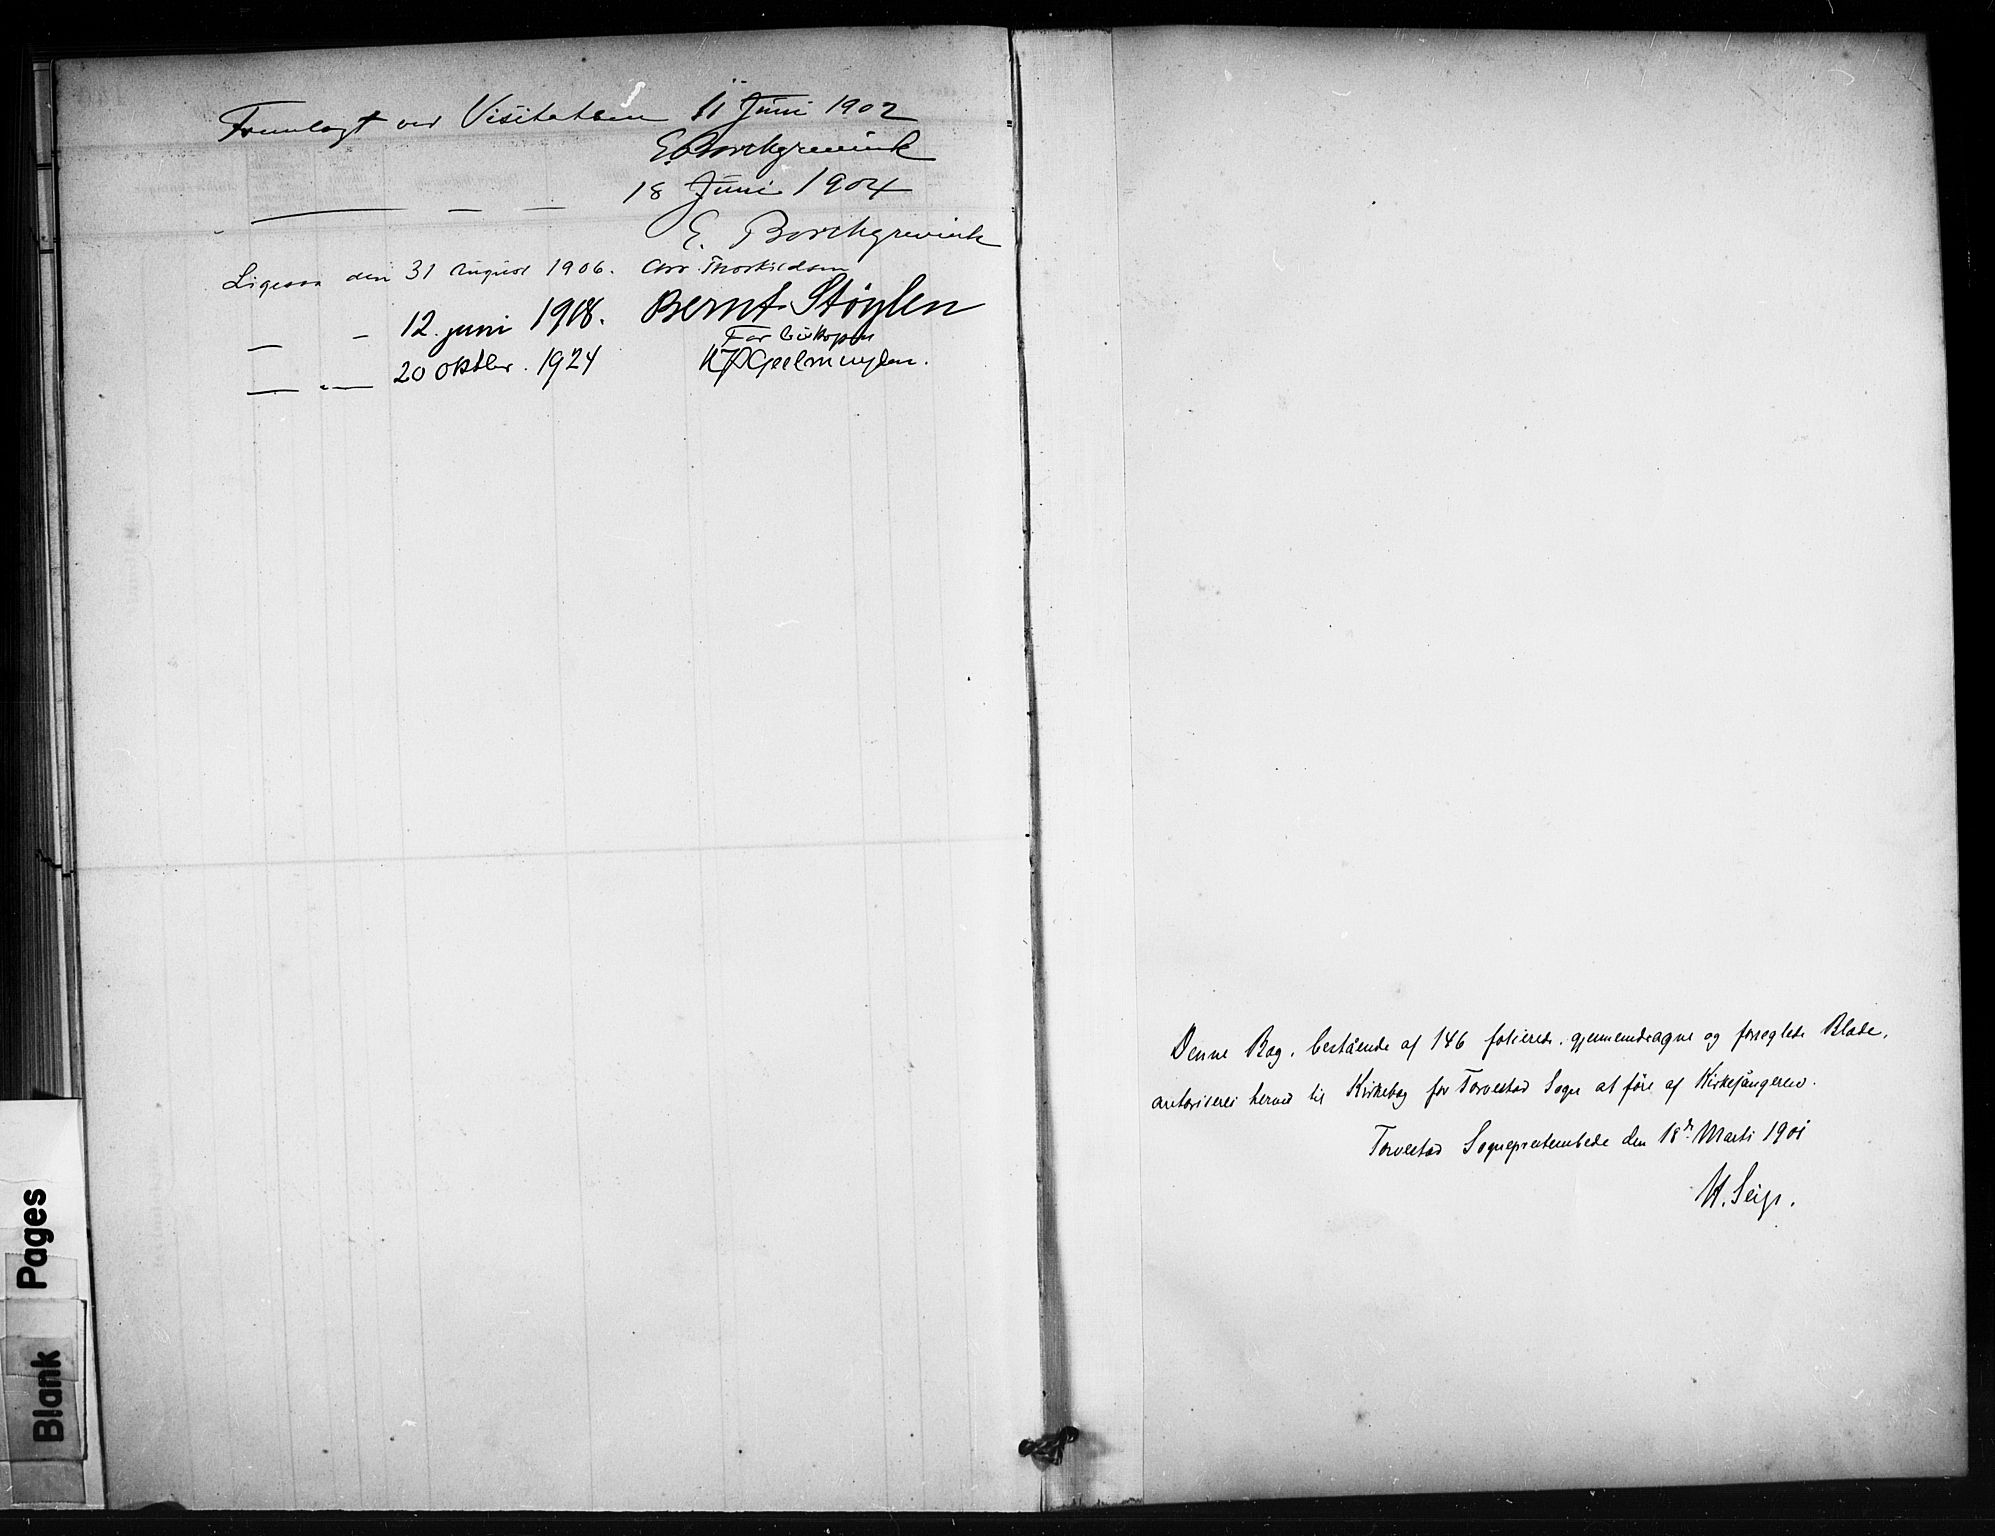 Fremlagt ved Visitatsen 11 Juni 1902
E. Borchgrevink
— — — 18 Juni 1904
E. Borchgrevink
Ligesaa den 31 August 1906. Chr. Thorkildsen
— - 12. juni 1918. Bernt Støylen
For biskopen
— — 20 oktbr. 1924 Geelmuyden.
Denne Bog, bestående af 146 folierede, gjennemdragne og forseglede Blade,
autoriseres herved til Kirkebog for Torvestad Sogn at føre af Kirkesångeren.
Torvestad Sogneprestembede den 18de Marts 1901
Blank Pages